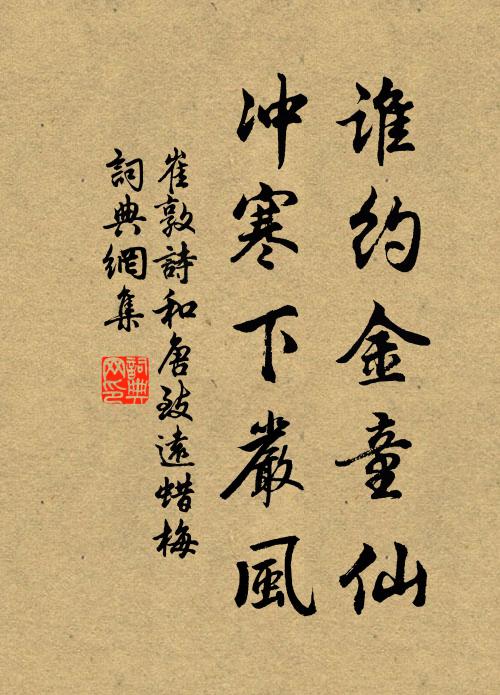 谁约金童仙
冲寒下嚴風
崔敦詩和唐致遠蜡梅
詞典網集
詞典网印